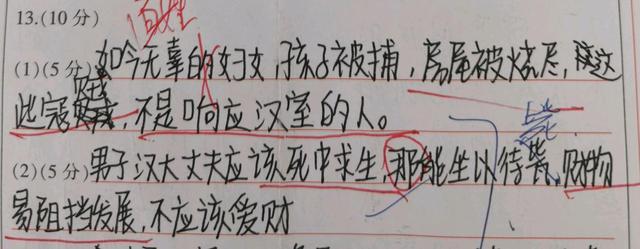 13.(10分)
百姓
(1)(5分)如今无辜的妇女,孩子被捕,房屋被烧尽,
贼
此寇,不是响应汉室的人。
毙
(2)(5分)男子汉大丈夫应该死中求生,那能坐以待毙,财物
易阻挡发展,不应该爱财